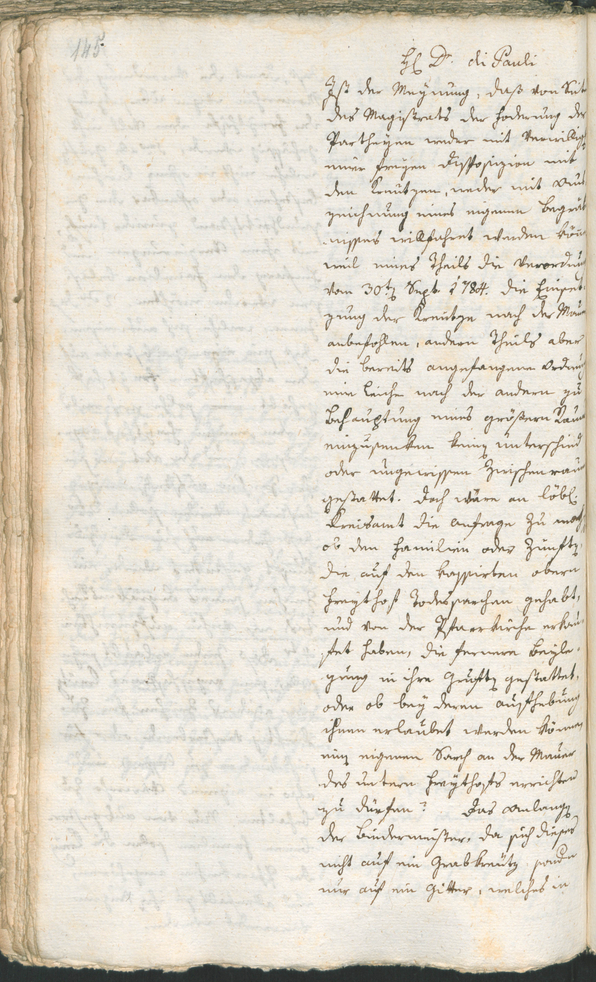 145
H. Dr. di Pauli
Ist der Meynung, daß von Seit
des Magistrats der Foderung der
Partheyen weder mit Verwillig
einer freyen Disposizion mit
den Kreützen, weder mit Aus
zeichnung eines eigenen Begräb
nisses willfahret werden könne
weil eines Theils die Verordnu
vom 30t Sept. 1784. die Einset
zung der Kreutze nach der Mau
anbefohlen, andern Theils aber
die bereits angefangene Ordnung
eine Leiche nach der andern zu
Behauptung eines größern Raum
einzusenken kein unterschied
oder ungewissen Zwischenraum
gestattet. Doch wäre an löbl.
Kreisamt die Anfrage zu mach
ob den Familien oder Zünften,
die auf dem kassirten obern
Freythof Todesarchen gehabt,
und von der Pfarrkirche erkau
fet haben, die fernere Beyle
gung in ihre Gruften gestattet,
oder ob bey deren aufhebung
ihnen erlaubet werden können
ein eigenen Sarch an der Mauer
des untern Freythofs errichten
zu dürfen? Das Anlangen
der Bindermeister, da sich dieses
nicht auf ein Grabkreutz sonde
nur auf ein Gitter, welches in